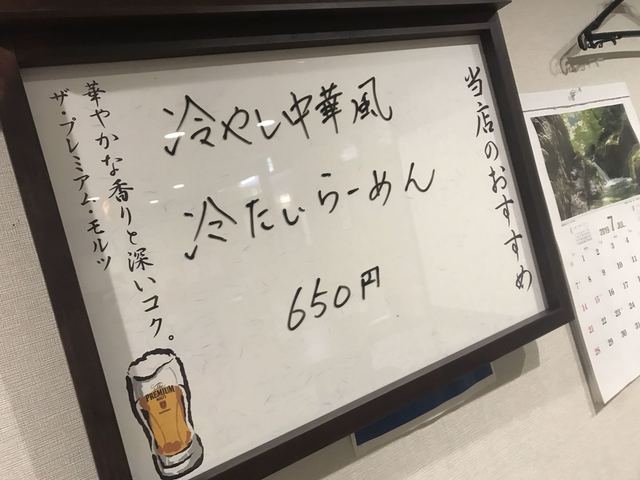 当店のおすすめ
冷やし中華風
冷たいらーめん
650円
華やかな香りと深いコク。
ザ・プレミアム・モルツ
PREMIUM
2019 7 JUL